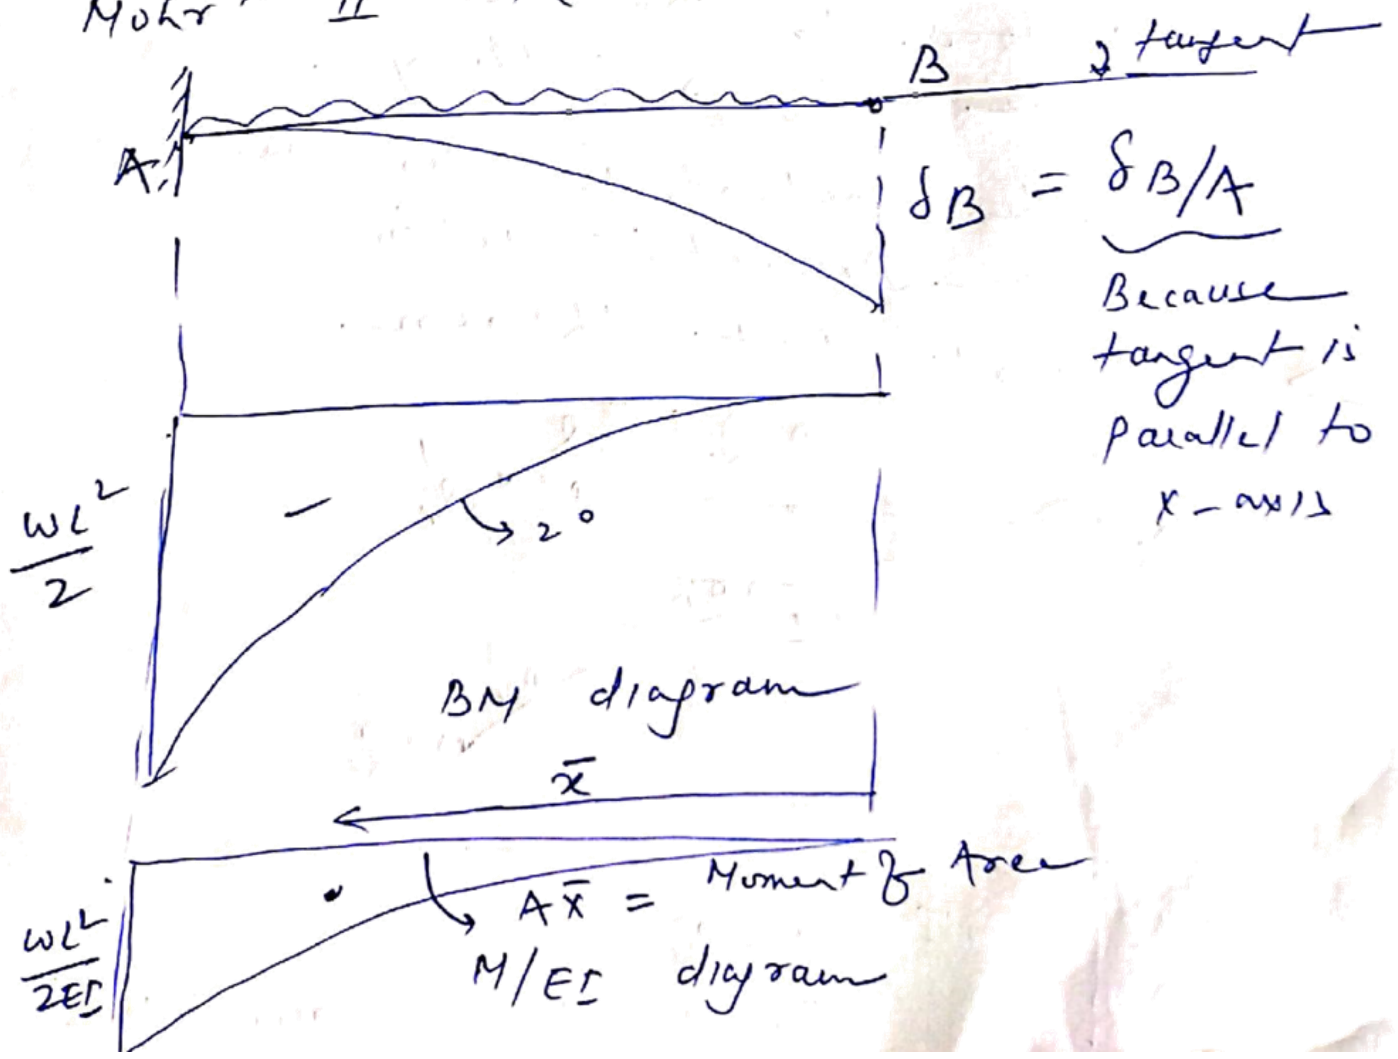 Mohr II
B tangent
A
δB = δB/A
Because
tangent is
parallel to
x-axis
wL²/2
- 2°
BM diagram
x̄
Ax̄ = Moment of Area
wL²/2EI
M/EI diagram